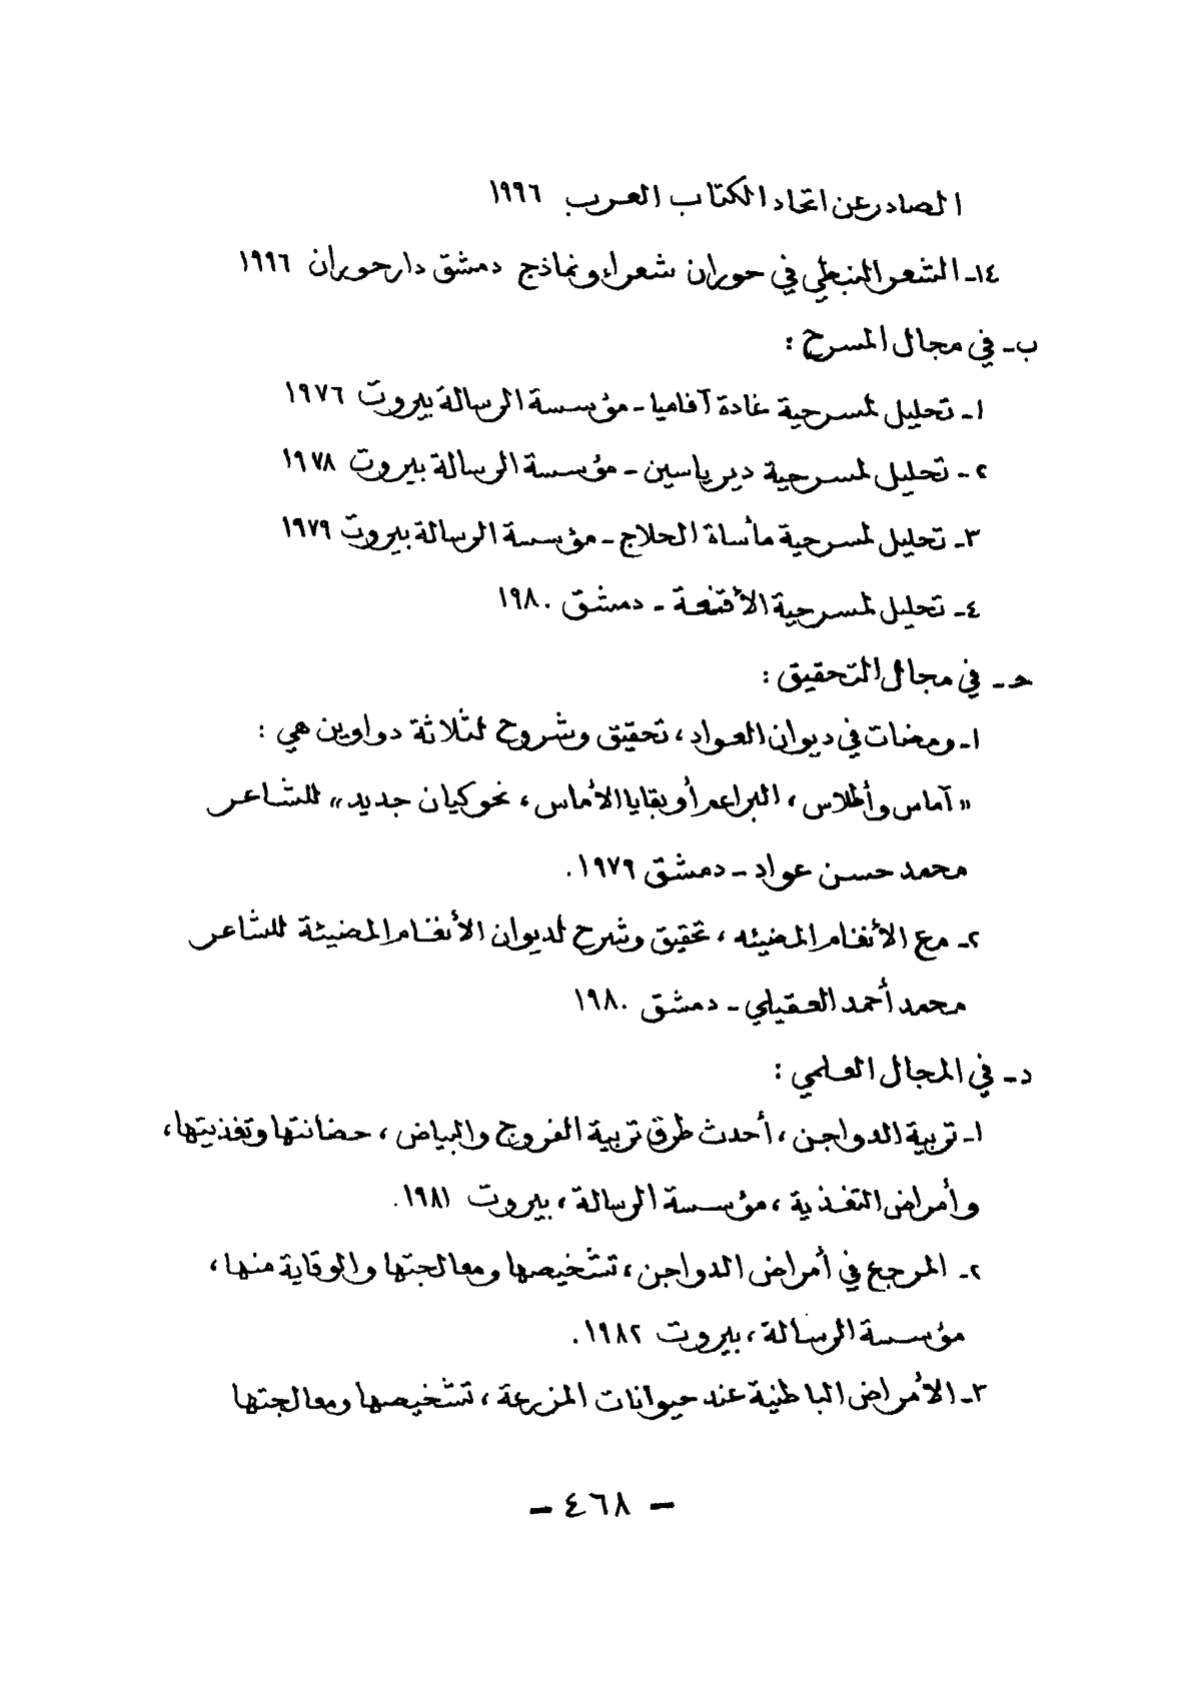 الصادر عن اتحاد الكتاب العرب ١٩٩٦
١٤ـ الشعر النبطي في حوران شعراء ونماذج دمشق دار حوران ١٩٩٦
ب ـ في مجال المسرح :
١ـ تحليل لمسرحية غادة آفاميا ـ مؤسسة الرسالة بيروت ١٩٧٦
٢ـ تحليل لمسرحية دير ياسين ـ مؤسسة الرسالة بيروت ١٩٧٨
٣ـ تحليل لمسرحية مأساة الحلاج ـ مؤسسة الرسالة بيروت ١٩٧٩
٤ـ تحليل لمسرحية الأقنعة ـ دمشق ١٩٨٠
حـ ـ في مجال التحقيق :
١ـ ومضات في ديوان العواد ، تحقيق وشروح لثلاثة دواوين هي :
« آماس وأطلاس ، البراعم أو بقايا الأماس ، نحو كيان جديد » للشاعر
محمد حسن عواد ـ دمشق ١٩٧٩.
٢ـ مع الأنغام المضيئه ، تحقيق وشرح لديوان الأنغام المضيئة للشاعر
محمد أحمد العقيلي ـ دمشق ١٩٨٠
د ـ في المجال العلمي :
١ـ تربية الدواجن ، أحدث طرق تربية الفروج والبياض ، حضانتها وتغذيتها ،
وأمراض التغذية ، مؤسسة الرسالة ، بيروت ١٩٨١.
٢ـ المرجع في أمراض الدواجن ، تشخيصها ومعالجتها والوقاية منها ،
مؤسسة الرسالة ، بيروت ١٩٨٢.
٣ـ الأمراض الباطنية عند حيوانات المزرعة ، تشخيصها ومعالجتها
ـ ٤٦٨ ـ